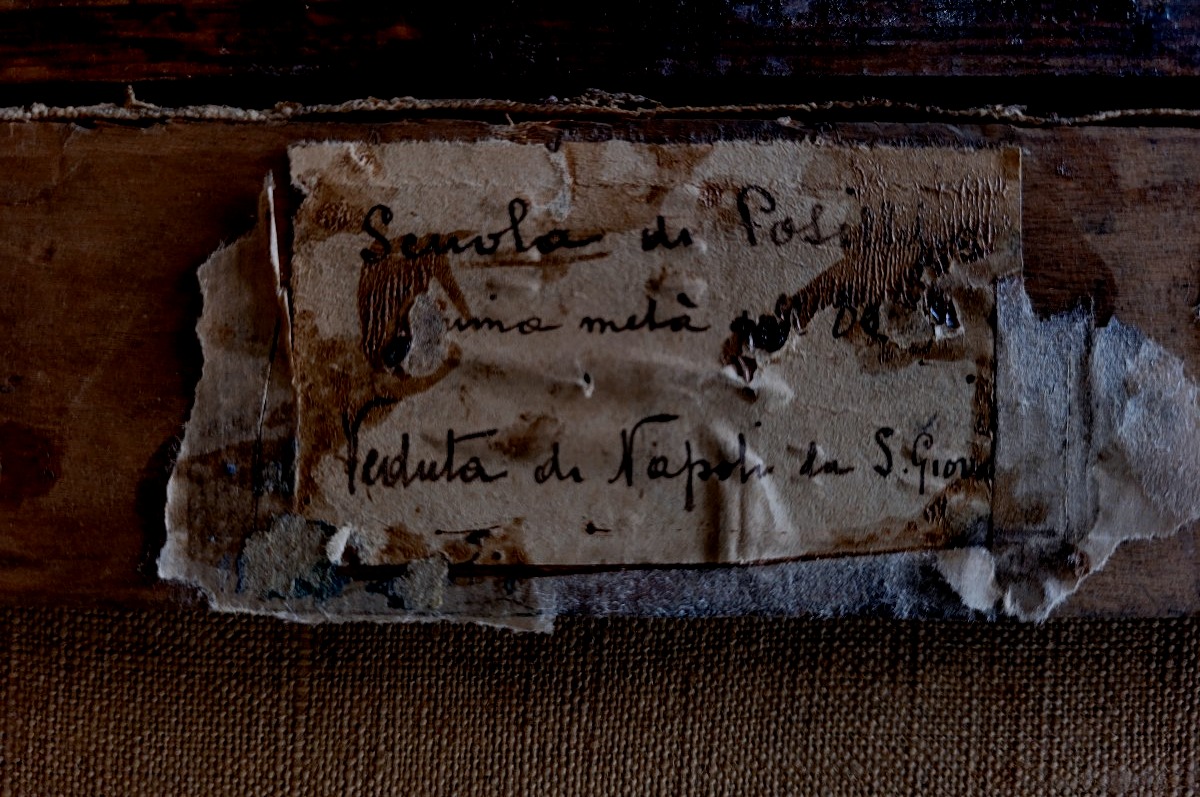 Scuola di Posillipo
metà
Veduta di Napoli da S. Giov